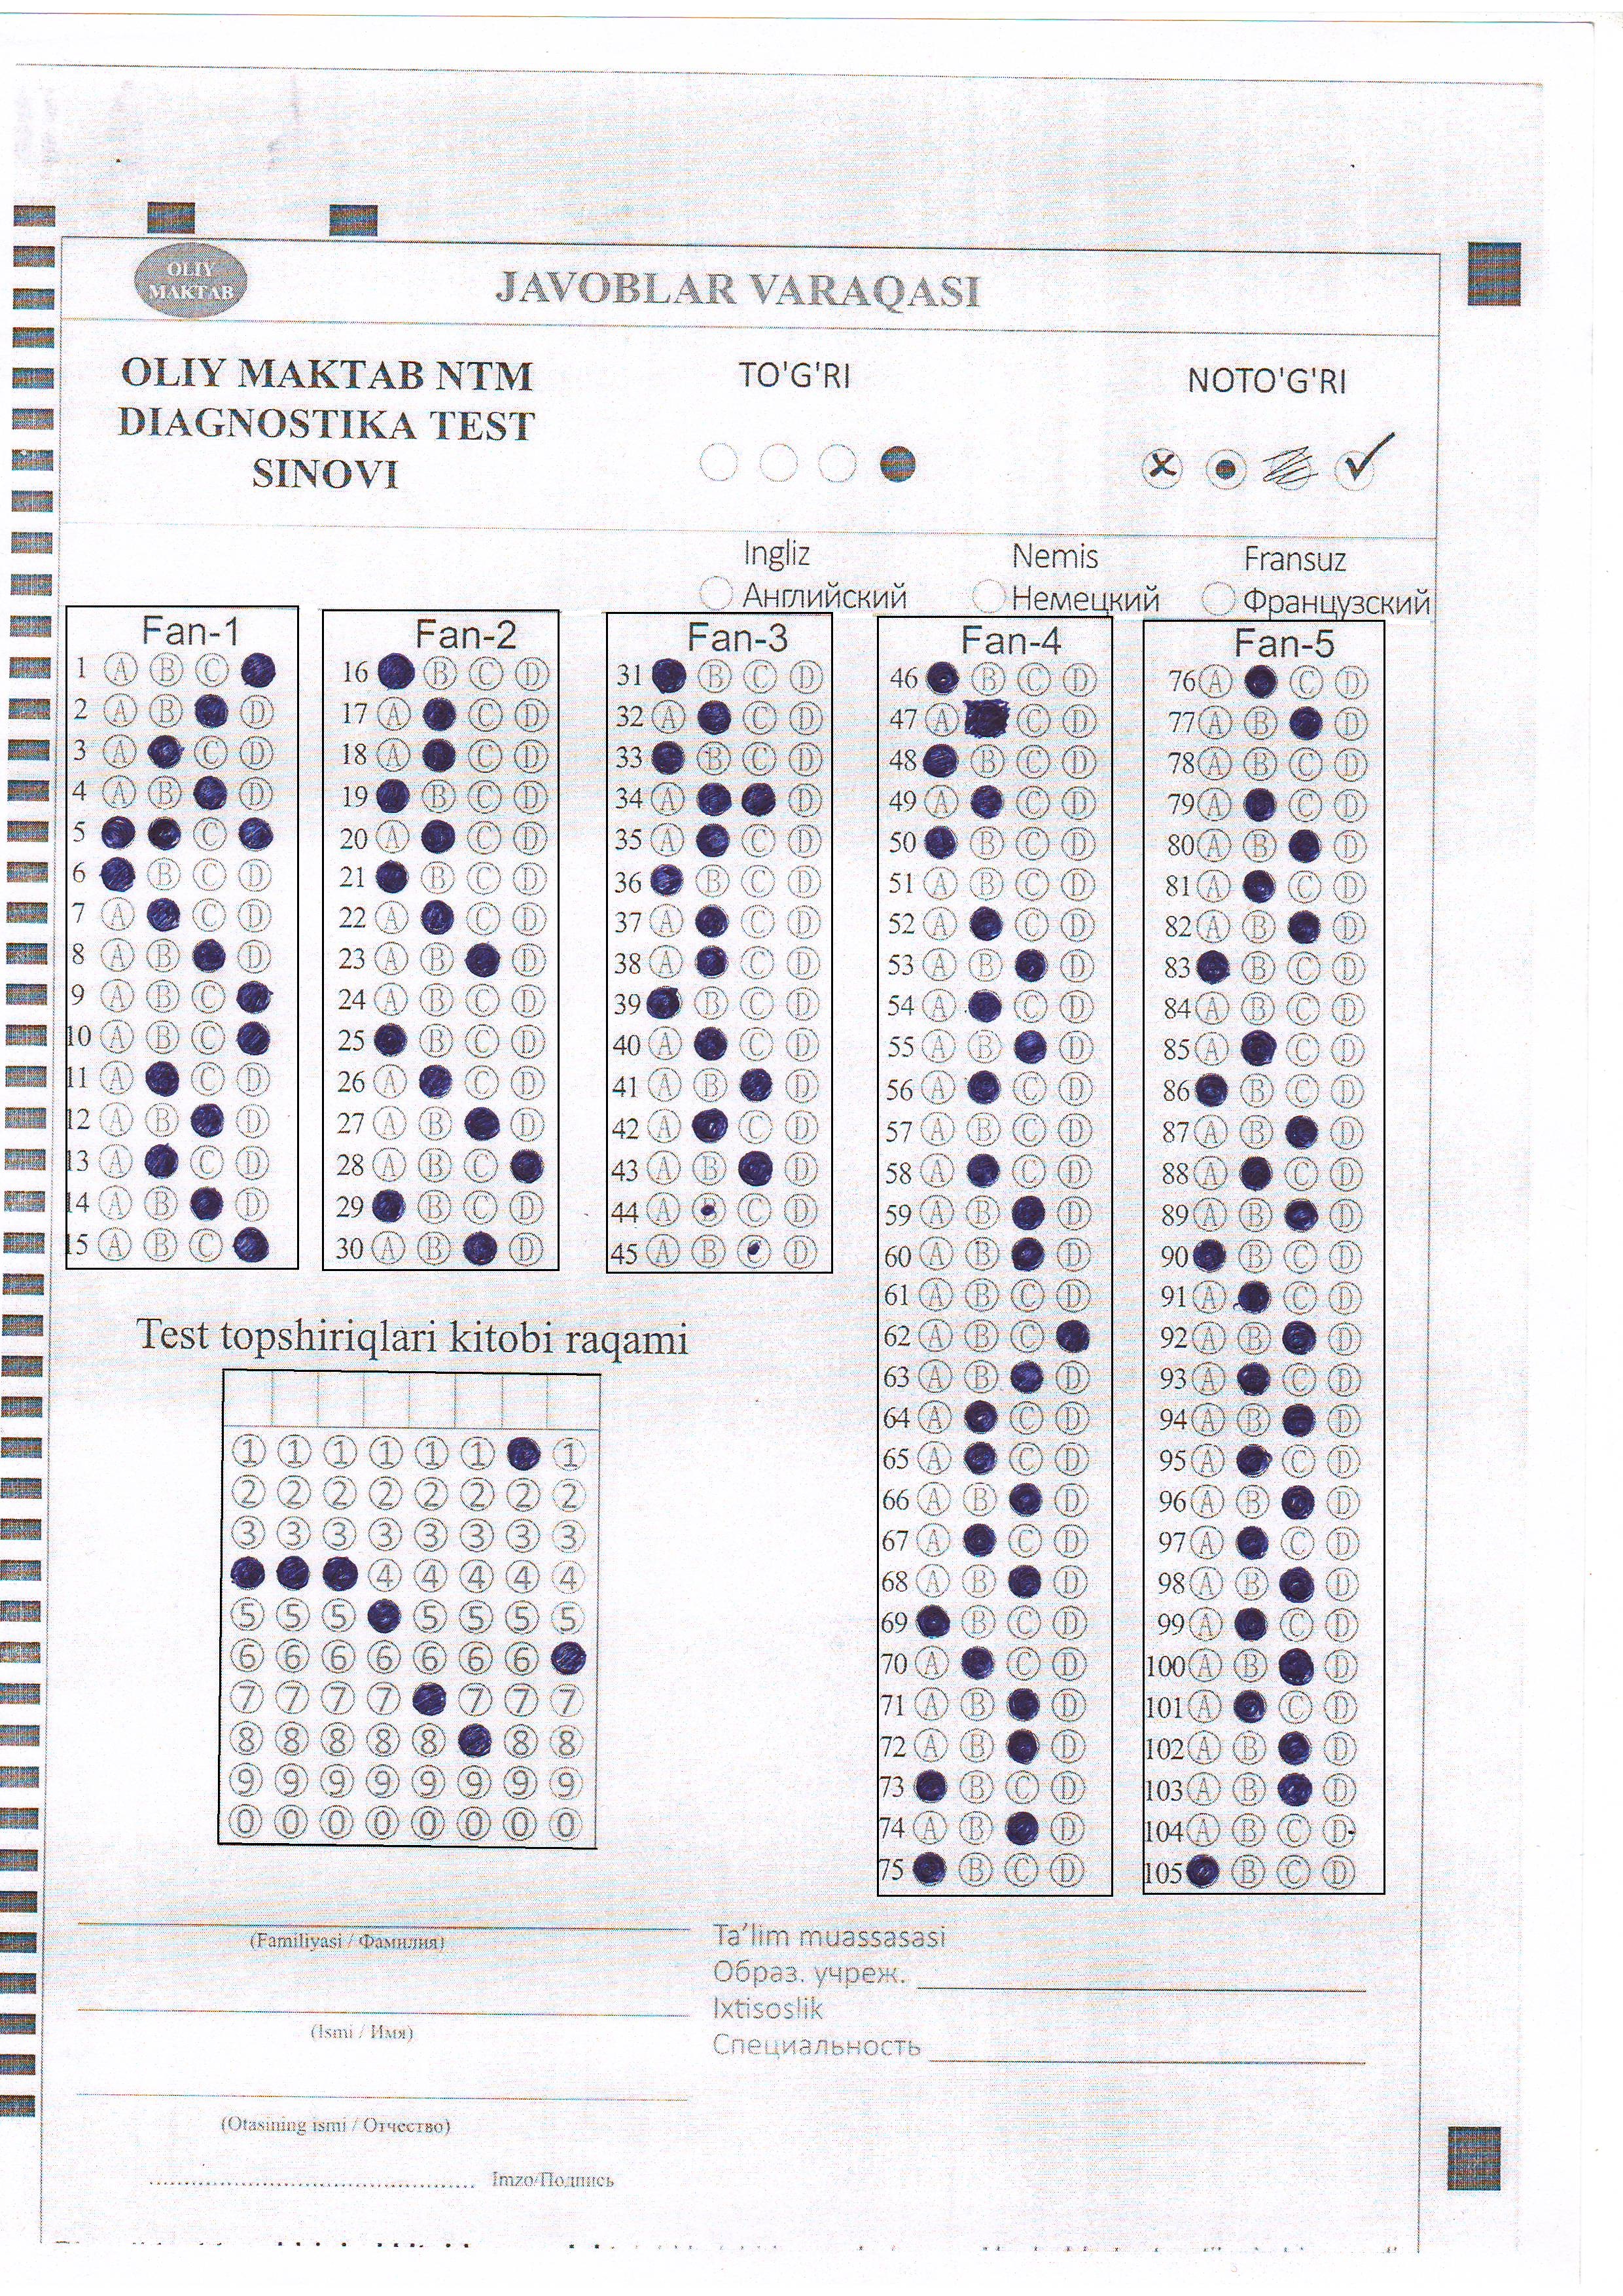 OLIY
MAKTAB
JAVOBLAR VARAQASI
OLIY MAKTAB NTM
DIAGNOSTIKA TEST
SINOVI
TO'G'RI
NOTO'G'RI
Ingliz
Английский
Nemis
Немецкий
Fransuz
Французский
Fan-1
1 A B C
2 A B D
3 A C D
4 A B D
5 C
6 B C D
7 A C D
8 A B D
9 A B C
10 A B C
11 A C D
12 A B D
13 A C D
14 A B D
15 A B C
Fan-2
16 B C D
17 A C D
18 A C D
19 B C D
20 A C D
21 B C D
22 A C D
23 A B D
24 A B C D
25 B C D
26 A C D
27 A B D
28 A B C
29 B C D
30 A B D
Fan-3
31 B C D
32 A C D
33 B C D
34 A D
35 A C D
36 B C D
37 A C D
38 A C D
39 B C D
40 A C D
41 A B D
42 A C D
43 A B D
44 A B C D
45 A B C D
Fan-4
46 B C D
47 A C D
48 B C D
49 A C D
50 B C D
51 A B C D
52 A C D
53 A B D
54 A C D
55 A B D
56 A C D
57 A B C D
58 A C D
59 A B D
60 A B D
61 A B C D
62 A B C
63 A B D
64 A C D
65 A C D
66 A B D
67 A C D
68 A B D
69 B C D
70 A C D
71 A B D
72 A B D
73 B C D
74 A B D
75 B C D
Fan-5
76 A C D
77 A B D
78 A B C D
79 A C D
80 A B D
81 A C D
82 A B D
83 B C D
84 A B C D
85 A C D
86 B C D
87 A B D
88 A C D
89 A B D
90 B C D
91 A C D
92 A B D
93 A C D
94 A B D
95 A C D
96 A B D
97 A C D
98 A B D
99 A C D
100 A B D
101 A C D
102 A B D
103 A B D
104 A B C D
105 B C D
Test topshiriqlari kitobi raqami
1 1 1 1 1 1 1
2 2 2 2 2 2 2 2
3 3 3 3 3 3 3 3
4 4 4 4 4
5 5 5 5 5 5 5
6 6 6 6 6 6 6
7 7 7 7 7 7 7
8 8 8 8 8 8 8
9 9 9 9 9 9 9 9
0 0 0 0 0 0 0 0
(Familiyasi / Фамилия)
(Ismi / Имя)
(Otasining ismi / Отчество)
Imzo/Подпись
Ta’lim muassasasi
Образ. учреж.
Ixtisoslik
Специальность